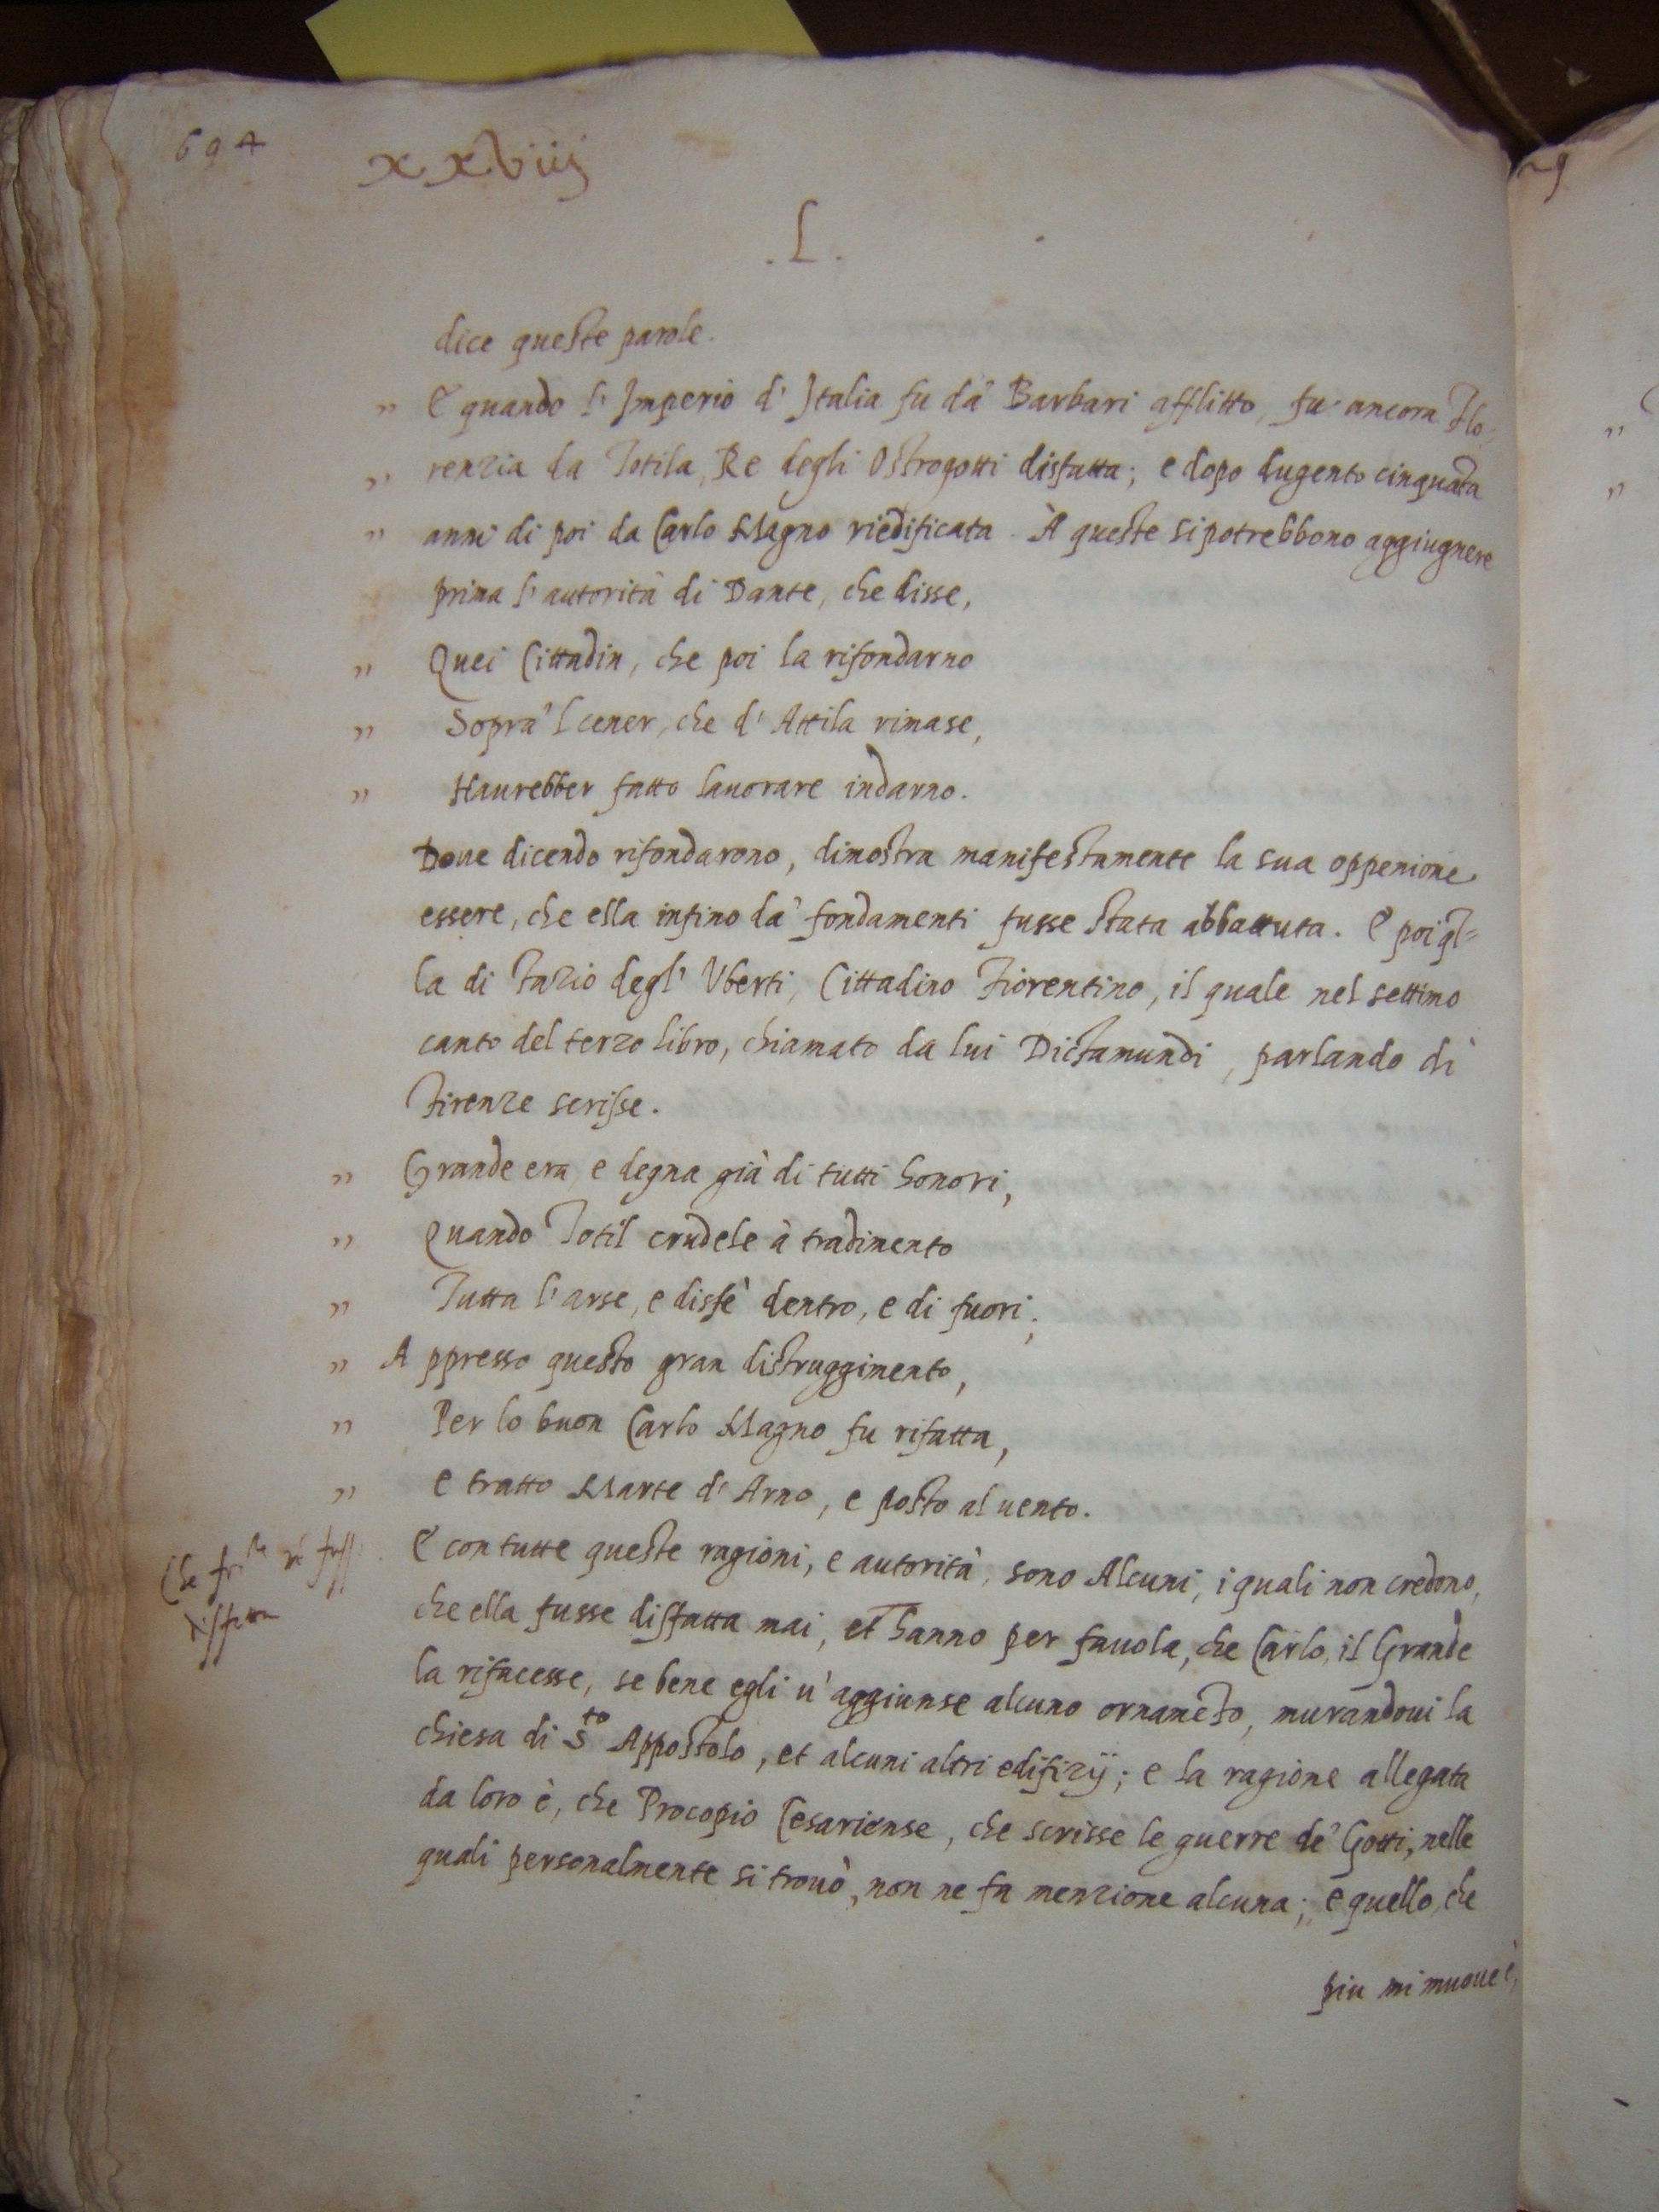 694
xxviij
.L.
dice queste parole.
" E quando l' Imperio d' Italia fu da' Barbari afflitto, fu ancora Flo-
" renzia da Totila, Re degli Ostrogotti disfatta; e dopo dugento cinquāta
" anni di poi da Carlo Magno riedificata. À queste si potrebbono aggiugnere
prima l' autorità di Dante, che disse,
" Quei Cittadin, che poi la rifondarno
" Sopra 'l cener, che d' Attila rimase,
" Haurebber fatto lauorare indarno.
Doue dicendo rifondarono, dimostra manifestamente la sua oppenione
essere, che ella infino da' fondamenti fusse stata abbattuta. E poi ql=
la di Fazio degl' Vberti, Cittadino Fiorentino, il quale nel settimo
canto del terzo libro, chiamato da lui Dictamundi, parlando di
Firenze scrisse.
" Grande era, e degna già di tutti honori,
" Quando Totil crudele à tradimento
" Tutta l' arse, e disfè dentro, e di fuori;
" Appresso questo gran distruggimento,
" Per lo buon Carlo Magno fu rifatta,
" e tratto Marte d' Arno, e posto al uento.
E con tutte queste ragioni, e autorità, sono Alcuni, i quali non credono,
che ella fusse disfatta mai, et hanno per fauola, che Carlo, il Grande
la rifacesse, se bene egli u' aggiunse alcuno ornamēto, murandoui la
chiesa di Sto Appostolo, et alcuni altri edifizij; e la ragione allegata
da loro è, che Procopio Cesariense, che scrisse le guerre de' Gotti, nelle
quali personalmente si trouò, non ne fa menzione alcuna; e quello, che
piu mi muoue è,
Che
disfatta